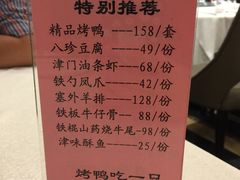 特别推荐
精品烤鸭----158/套
八珍豆腐----49/份
津门油条虾---68/份
铁勺凤爪----42/份
塞外羊排---128/份
铁板牛仔骨-- 88/份
铁棍山药烧牛尾-98/份
津味酥鱼----25/份
烤鸭吃一品